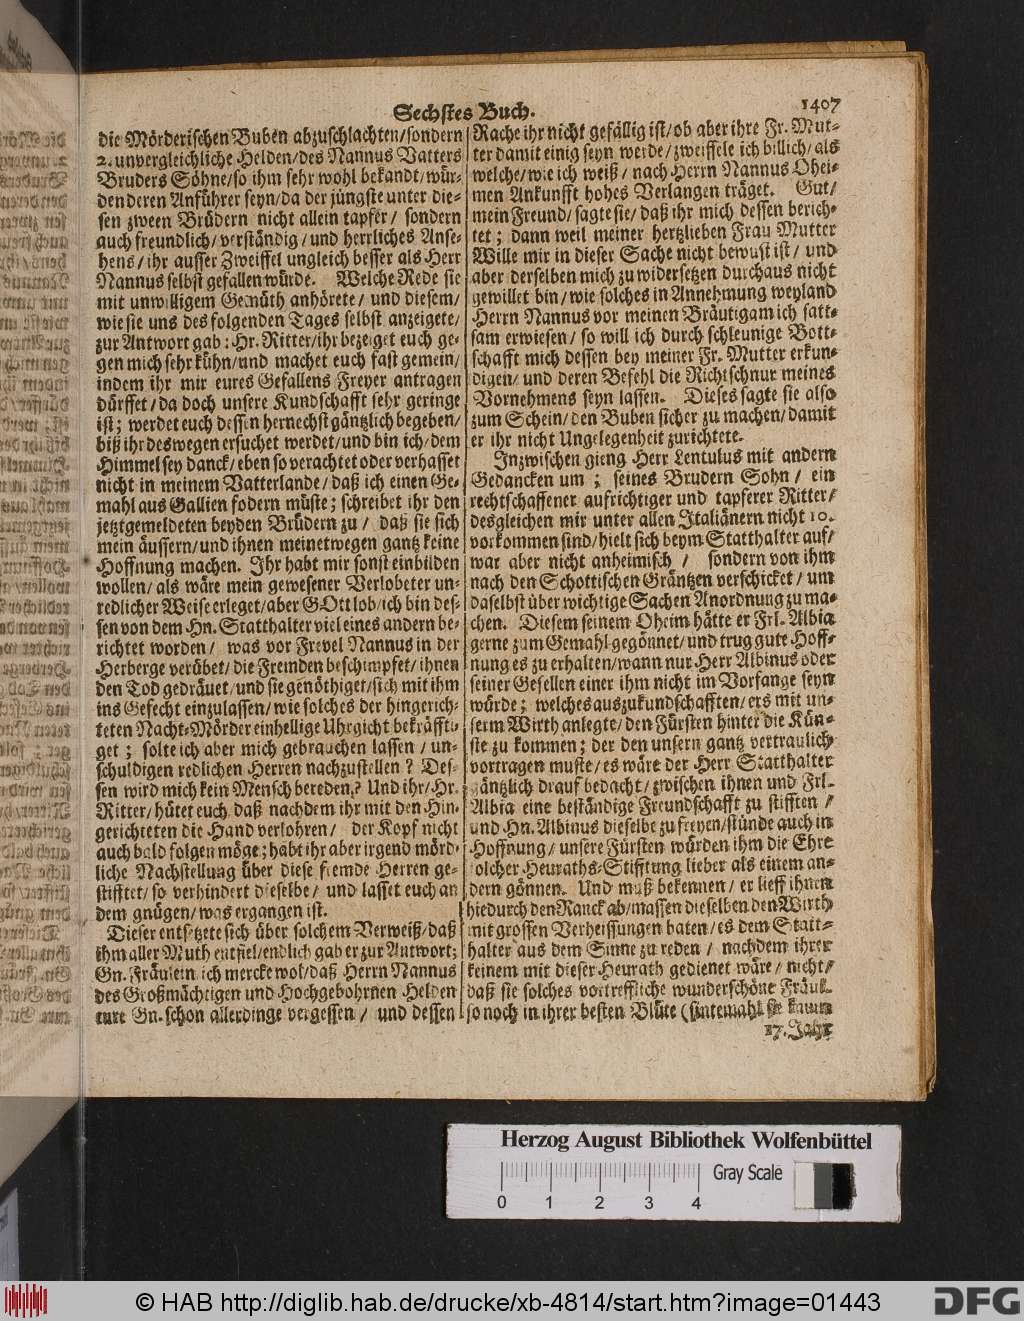 Sechstes Buch.
1407
die Mörderischen Buben abzuschlachten/sondern
2. unvergleichliche Helden/des Nannus Vatters
Bruders Söhne/so ihm sehr wohl bekandt/wür-
den deren Anführer seyn/da der jüngste unter die-
sen zween Brüdern nicht allein tapfer/ sondern
auch freundlich/verständig/und herrliches Anse-
hens/ihr ausser Zweiffel ungleich besser als Herr
Nannus selbst gefallen würde. Welche Rede sie
mit unwilligem Gemüth anhörete/ und diesem/
wie sie uns des folgenden Tages selbst anzeigete/
zur Antwort gab: Hr. Ritter/ihr bezeiget euch ge-
gen mich sehr kühn/und machet euch fast gemein/
indem ihr mir eures Gefallens Freyer antragen
dürffet/da doch unsere Kundschafft sehr geringe
ist; werdet euch dessen hernechst gäntzlich begeben/
biß ihr deswegen ersuchet werdet/und bin ich/dem
Himmel sey danck/eben so verachtet oder verhasset
nicht in meinem Vatterlande/daß ich einen Ge-
mahl aus Gallien fodern müste; schreibet ihr den
jetztgemeldeten beyden Brüdern zu/ daß sie sich
mein äussern/und ihnen meinetwegen gantz keine
Hoffnung machen. Ihr habt mir sonst einbilden
wollen/als wäre mein gewesener Verlobeter un-
redlicher Weise erleget/aber GOtt lob/ich bin des-
sen von dem Hn. Statthalter viel eines andern be-
richtet worden/ was vor Frevel Nannus in der
Herberge verübet/die Fremden beschimpfet/ihnen
den Tod gedräuet/und sie genöthiget/sich mit ihm
ins Gefecht einzulassen/wie solches der hingerich-
teten Nacht-Mörder einhellige Uhrgicht bekräffti-
get; solte ich aber mich gebrauchen lassen/ un-
schuldigen redlichen Herren nachzustellen? Des-
sen wird mich kein Mensch bereden? Und ihr/Hr.
Ritter/hütet euch daß nachdem ihr mit den Hin-
gerichteten die Hand verlohren/ der Kopf nicht
auch bald folgen möge; habt ihr aber irgend mörd-
liche Nachstellung über diese fremde Herren ge-
stifftet/so verhindert dieselbe/ und lasset euch an
dem gnügen/was ergangen ist.
Dieser entsetzete sich über solchem Verweiß/daß
ihm aller Muth entfiel/endlich gab er zur Antwort;
Gn. Fräulein ich mercke wol/daß Herrn Nannus
des Großmächtigen und Hochgebohrnen Helden
eure Gn. schon allerdinge vergessen/ und dessen
Rache ihr nicht gefällig ist/ob aber ihre Fr. Mut-
ter damit einig seyn werde/zweiffele ich billich/als
welche/wie ich weiß/nach Herrn Nannus Ohei-
men Ankunfft hohes Verlangen träget. Gut/
mein Freund/sagte sie/daß ihr mich dessen berich-
tet; dann weil meiner hertzlieben Frau Mutter
Wille mir in dieser Sache nicht bewust ist/ und
aber derselben mich zu widersetzen durchaus nicht
gewillet bin/wie solches in Annehmung weyland
Herrn Nannus vor meinen Bräutigam ich satt-
sam erwiesen/ so will ich durch schleunige Bott-
schafft mich dessen bey meiner Fr. Mutter erkun-
digen/ und deren Befehl die Richtschnur meines
Vornehmens seyn lassen. Dieses sagte sie also
zum Schein/den Buben sicher zu machen/damit
er ihr nicht Ungelegenheit zurichtete.
Inzwischen gieng Herr Lentulus mit andern
Gedancken um; seines Brudern Sohn/ ein
rechtschaffener aufrichtiger und tapferer Ritter/
desgleichen mir unter allen Italiänern nicht 10.
vorkommen sind/hielt sich beym Statthalter auf/
war aber nicht anheimisch/ sondern von ihm
nach den Schottischen Gräntzen verschicket/ um
daselbst über wichtige Sachen Anordnung zu ma-
chen. Diesem seinem Oheim hätte er Frl. Albia
gerne zum Gemahl gegönnet/und trug gute Hoff-
nung es zu erhalten/wann nur Herr Albinus oder
seiner Gesellen einer ihm nicht im Vorfange seyn
würde; welches auszukundschafften/ers mit un-
serm Wirth anlegte/den Fürsten hinter die Kün-
ste zu kommen; der den unsern gantz vertraulich
vortragen muste/es wäre der Herr Statthalter
gäntzlich drauf bedacht/zwischen ihnen und Frl.
Albia eine beständige Freundschafft zu stifften/
und Hn. Albinus dieselbe zu freyen/stünde auch in
Hoffnung/unsere Fürsten würden ihm die Ehre
solcher Heuraths-Stifftung lieber als einem an-
dern gönnen. Und muß bekennen/er lieff ihnen
hiedurch den Ranck ab/massen dieselben den Wirth
mit grossen Verheissungen baten/es dem Statt-
halter aus dem Sinne zu reden/ nachdem ihrer
keinem mit dieser Heurath gedienet wäre/nicht/
daß sie solches vortreffliche wunderschöne Fräul.
so noch in ihrer besten Blüte (sintemahl sie kaum
17. Jahr
Herzog August Bibliothek Wolfenbüttel
Gray Scale
0 1 2 3 4
© HAB http://diglib.hab.de/drucke/xb-4814/start.htm?image=01443
DFG